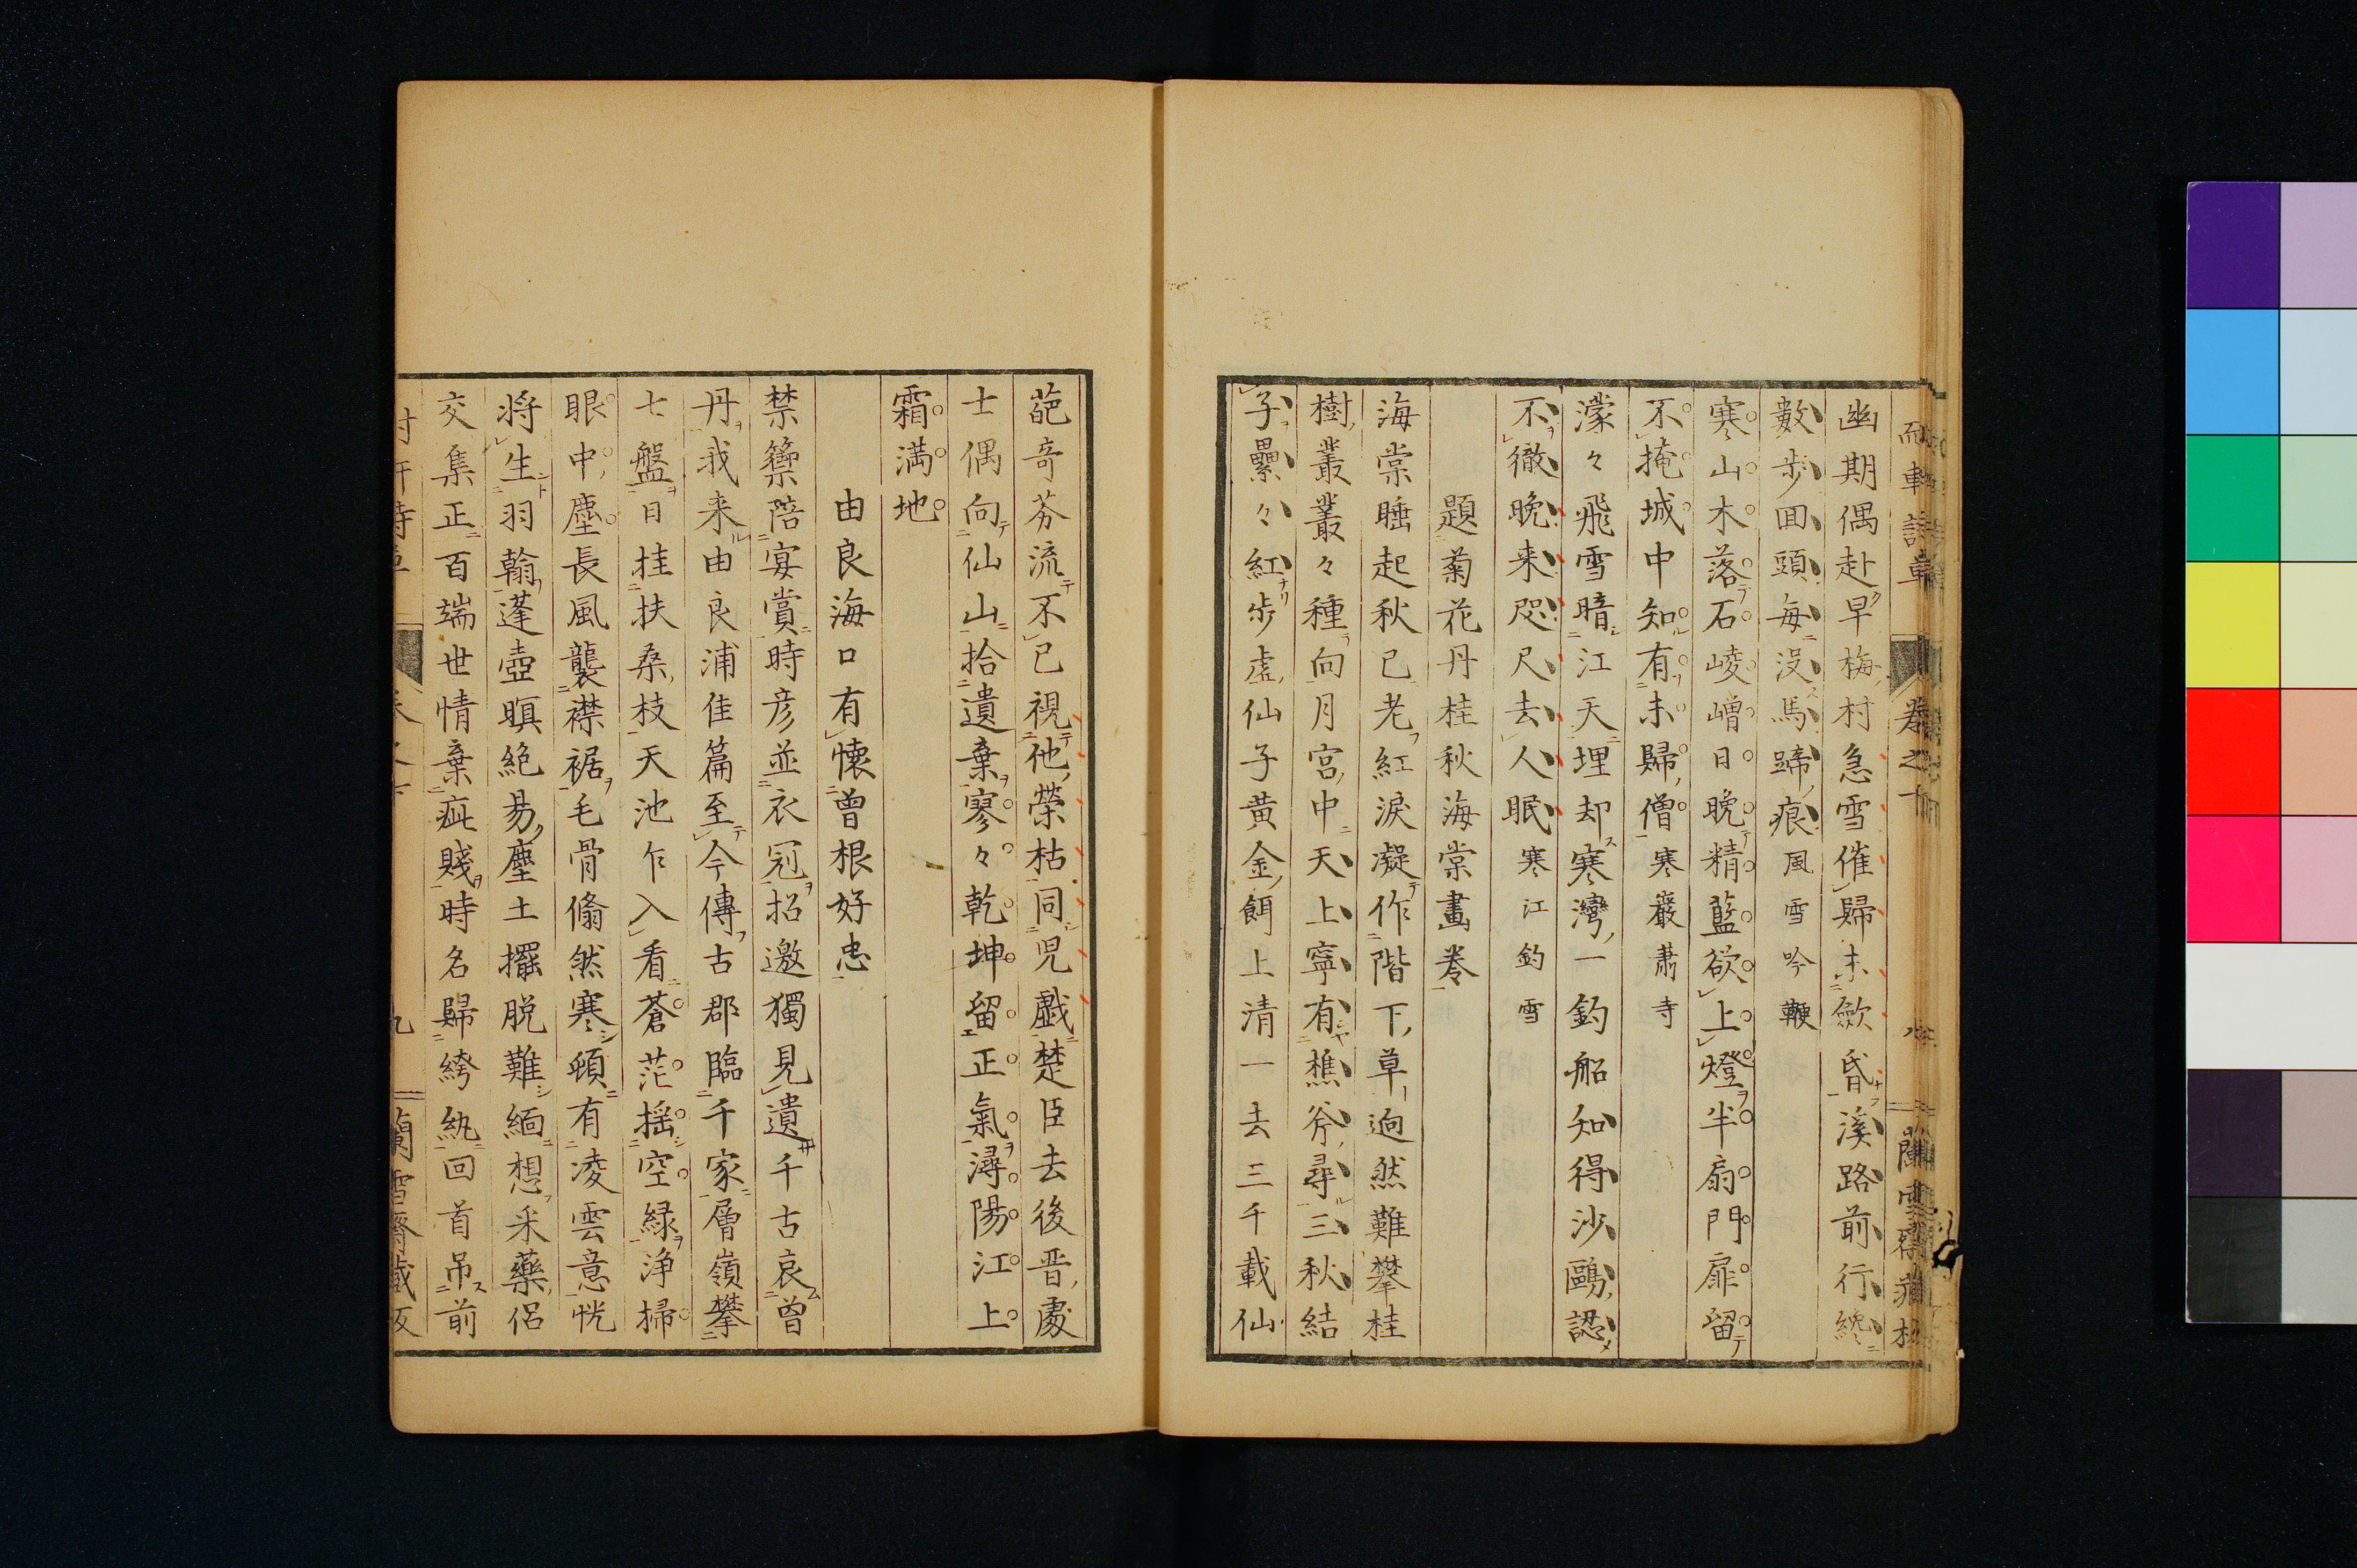 幽期偶赴早梅村急雪催歸未歛昏溪路前行纔
數歩回頭毎没馬蹄痕 風雪吟鞭
寒山木落石崚嶒日晩精藍欲上燈半扇門扉留
不掩城中知有未歸僧 寒巖肅寺
濛々飛雪暗江天埋却寒灣一釣船知得沙鷗認
不徹晩来咫尺去人眠 寒江釣雪
題菊花丹桂秋海棠畫巻
海棠睡起秋已老紅淚凝作階下草逈然難攀桂
樹叢叢々種向月宮中天上寧有樵斧尋三秋結
子纍々紅歩虚仙子黄金餌上清一去三千載仙
葩奇芬流不已視他榮枯同児戯楚臣去後晋處
士偶向仙山拾遺棄寥々乾坤留正氣潯陽江上
霜満地
由良海口有懐曾根好忠
禁籞陪宴賞時彦並衣冠招邀獨見遺千古哀曾
丹我来由良浦佳篇至今傳古郡臨千家層嶺攀
七盤日挂扶桑枝天池乍入看蒼茫揺空緑浄掃
眼中塵長風襲襟裾毛骨翛然寒頓有凌雲意恍
将生羽翰蓬壺暝絶易塵土擺脱難緬想采藥侶
交集正百端世情棄疵賤時名歸綺紈回首吊前